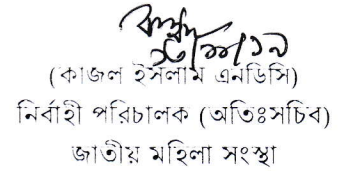 (কাজল ইসলাম এনডিসি)
নির্বাহী পরিচালক (অতিঃসচিব)
জাতীয় মহিলা সংস্থা